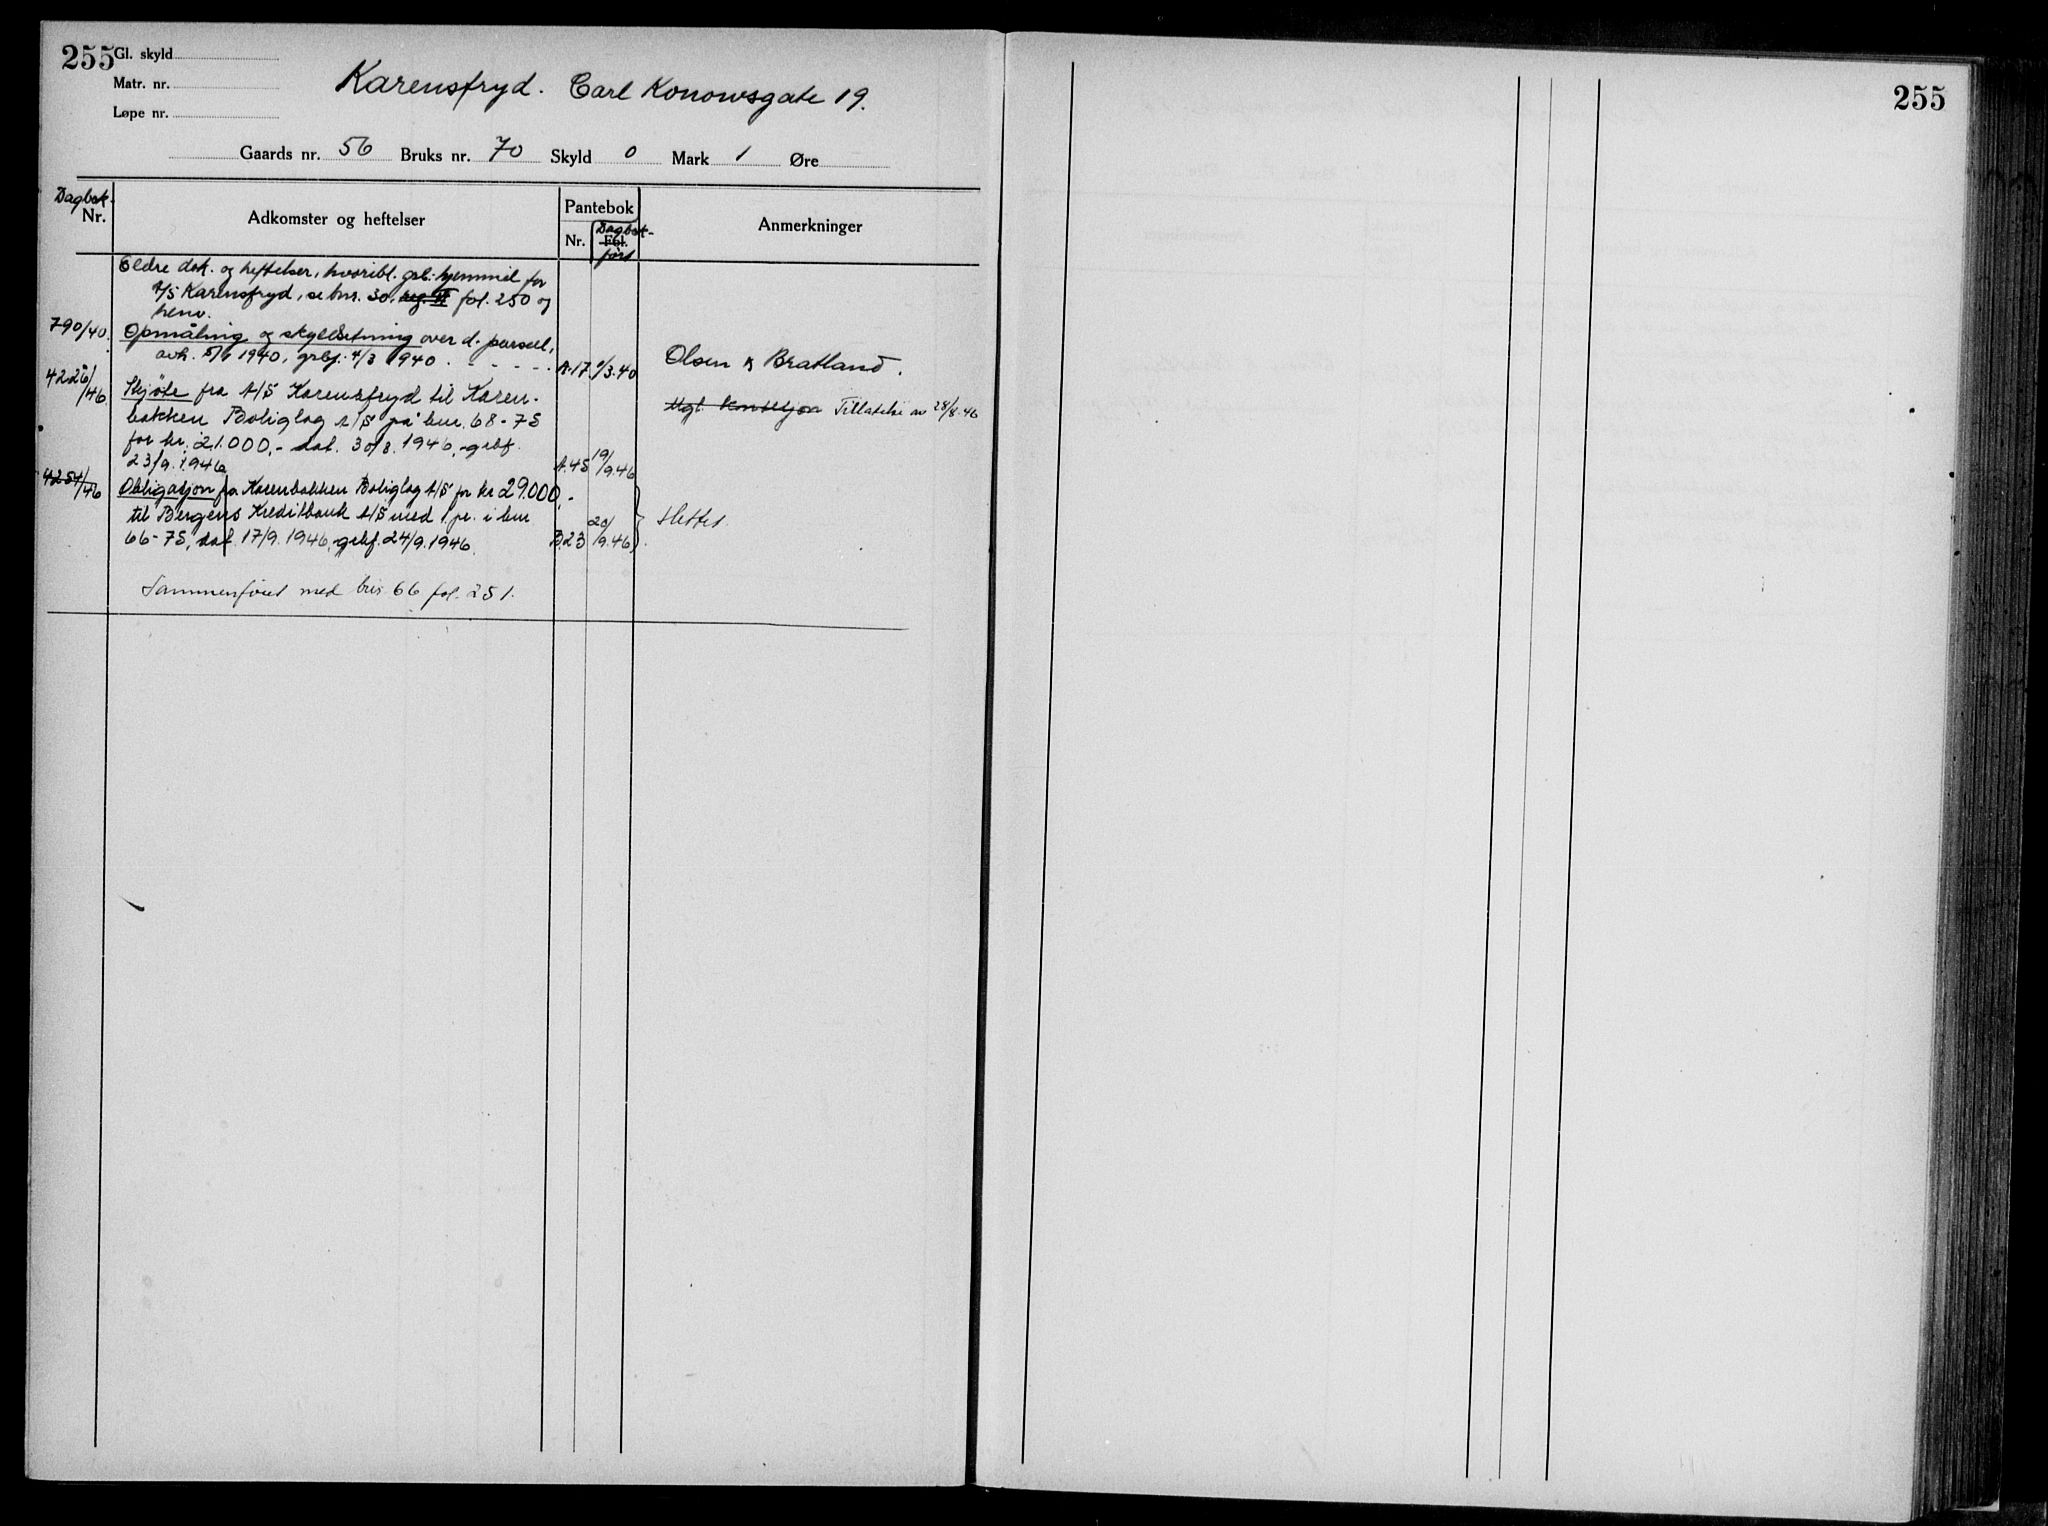 255
Gl. skyld
Matr. nr.
Løpe nr.
Karensfryd. Carl Konowsgate 19.
Gaards nr. 56 Bruks nr. 70 Skyld 0 Mark 1 Øre
Dagbok-
Nr.
Adkomster og heftelser
Pantebok
Nr.
Dagbok-
Fol.
ført
Anmerkninger
Eldre dok. og heftelser, hvoribl. grb. hjemmel for
A/S Karensfryd, se bnr. 30, reg. VI fol. 250 og
henv.
790/40. Opmåling og skyldsetning over d. parsell,
avh. 5/1 1940, grbf. 4/3 1940 - - - - - A.17 1/3.40 Olsen & Bratland.
4226/46 Skjøte fra A/S Karensfryd til Karen-
bakken Boliglag A/S på bnr. 68-75
Mgl. konsesjon Tillatelse av 28/8.46
for kr. 21.000,- dat. 30/8. 1946, grbf.
23/9. 1946 A.45 19/9.46
4254/46 Obligasjon fra Karenbakken Boliglag A/S for kr 29.000,-
til Bergens Kreditbank A/S med 1 pr. i bnr
66-75, dat. 17/9. 1946, grbf. 24/9. 1946. B.23 20/9.46 slettet.
Sammenføiet med bnr 66 fol. 251.
255